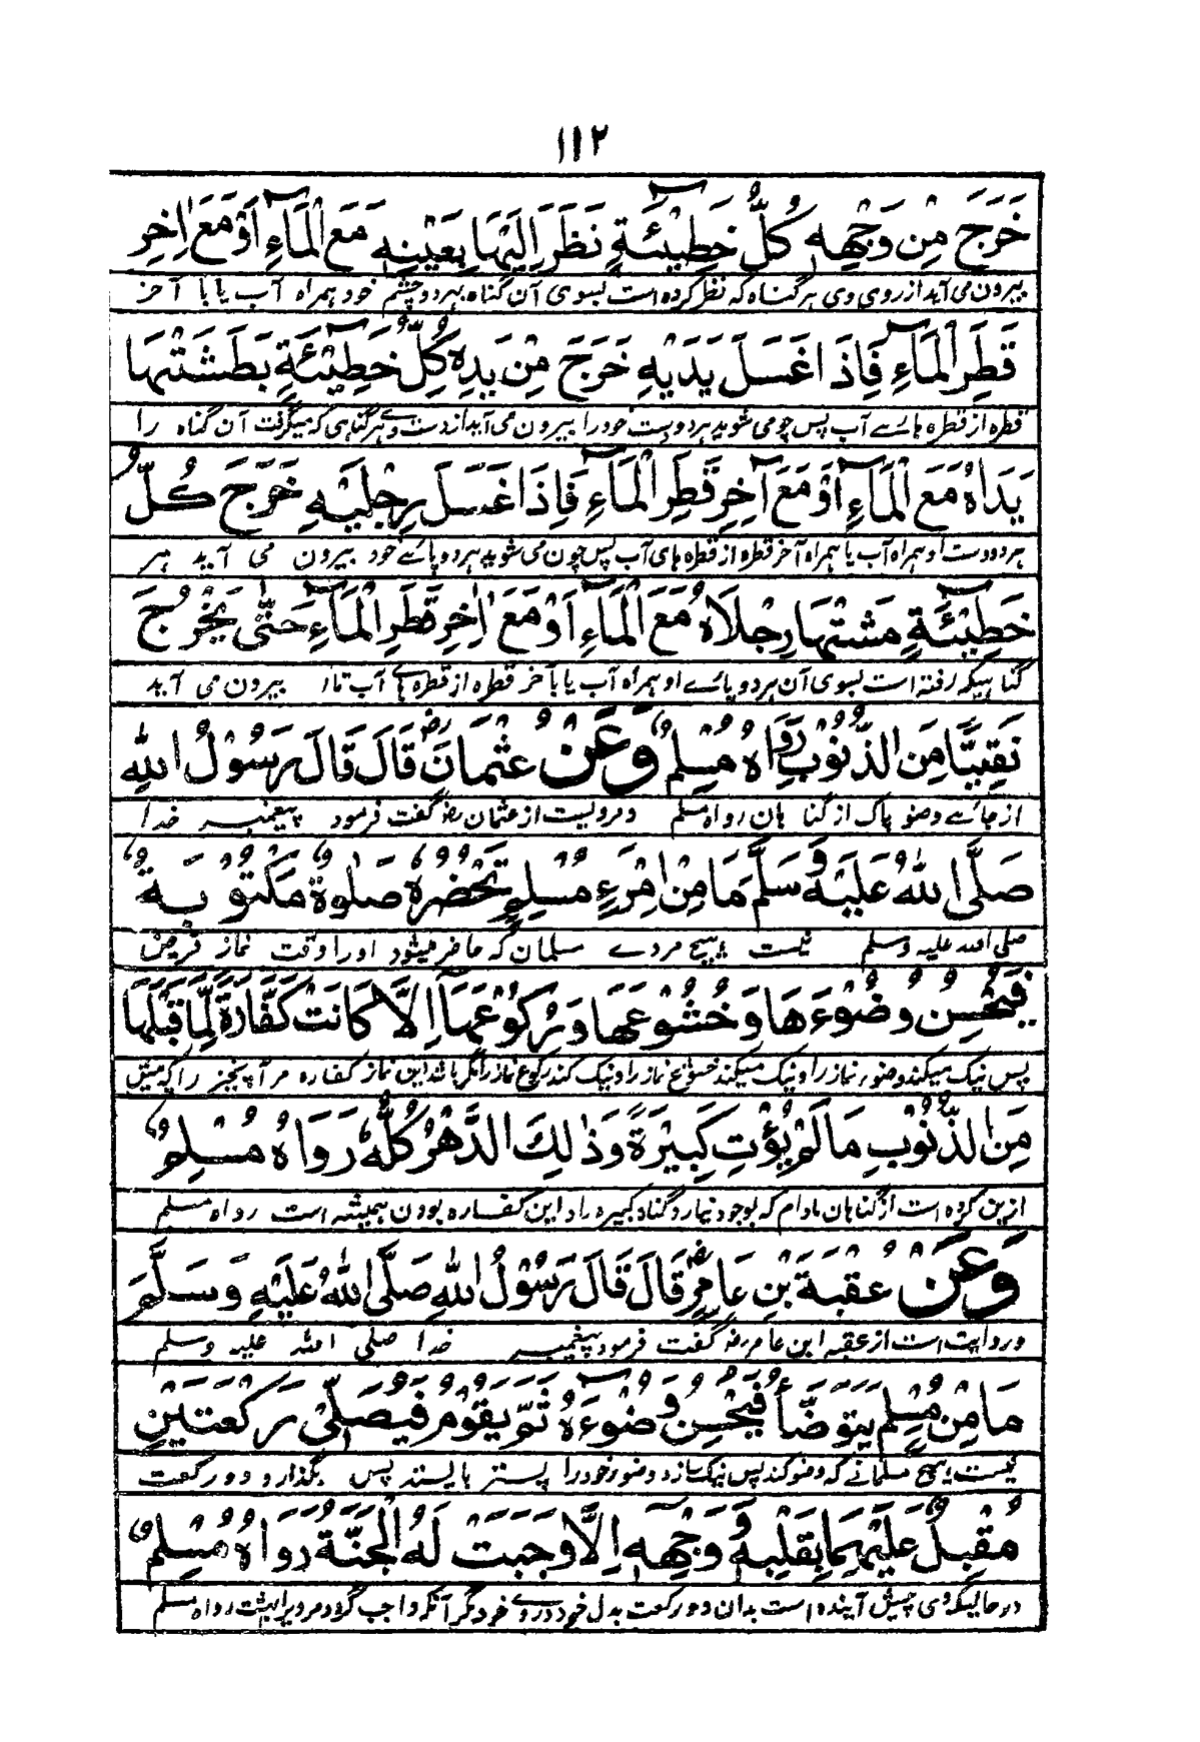 ۱۱۲
خَرَجَ مِنْ وَجْهِهٖ كُلُّ خَطِيْئَةٍ نَظَرَ اِلَيْهَا بِعَيْنِهٖ مَعَ الْمَآءِ اَوْ مَعَ اٰخِرِ
بیرون می آید از روی وی هر گناه که نظر کرده است بسوی آن گناه بهر دو چشم خود همراه آب یا با آخر
قَطْرِ الْمَآءِ فَاِذَا غَسَلَ يَدَيْهِ خَرَجَ مِنْ يَدِهٖ كُلُّ خَطِيْئَةٍ بَطَشَتْهَا
قطره از قطره هائے آب پس چو می شوید هر دو دست خود را بیرون می آید از دست وے هر گناهی که میگرفت آن گناه را
يَدَاهُ مَعَ الْمَآءِ اَوْ مَعَ آخِرِ قَطْرِ الْمَآءِ فَاِذَا غَسَلَ رِجْلَيْهِ خَرَجَ كُلُّ
هر دو دست او همراه آب یا همراه آخر قطره از قطره های آب پس چون می شوید هر دو پائے خود بیرون می آید هر
خَطِيْئَةٍ مَشَتْهَا رِجْلَاهُ مَعَ الْمَآءِ اَوْ مَعَ اٰخِرِ قَطْرِ الْمَآءِ حَتّٰى يَخْرُجَ
گناهیکه رفته است بسوی آن هر دو پائے او همراه آب یا با آخر قطره از قطره هاے آب تا آ بیرون می آید
نَقِيًّا مِنَ الذُّنُوْبِ رَوَاهُ مُسْلِمٌ وَعَنْ عُثْمَانَ رض قَالَ قَالَ رَسُوْلُ اللّٰهِ
از جائے وضو پاک از گنا هان رواه مسلم و مرویست از عثمان رض گفت فرمود پیغمبر خدا
صَلَّى اللهُ عَلَيْهِ وَسَلَّمَ مَا مِنْ اِمْرِءٍ مُسْلِمٍ تَحْضُرُهٗ صَلٰوةٌ مَكْتُوْبَةٌ
صلی الله علیه وسلم نیست هیچ مردے مسلمان که حاضر میشود او را وقت نماز فرض
فَيُحْسِنُ وُضُوْءَهَا وَخُشُوْعَهَا وَرُكُوْعَهَا اِلَّا كَانَتْ كَفَّارَةً لِّمَا قَبْلَهَا
پس نیک میکند وضوء نماز را و نیک میکند خشوع نماز را و نیک کند رکوع نماز را مگر باشد این نماز کفاره مر آنچیز را که پیش
مِنَ الذُّنُوْبِ مَا لَمْ يُؤْتِ كَبِيْرَةً وَذٰلِكَ الدَّهْرُ كُلُّهٗ رَوَاهُ مُسْلِمٌ
ازین کرده است از گناهان مادام که بوجود نیارد گناه کبیره را و این کفاره بودن همیشه است رواه مسلم
وَعَنْ عُقْبَةَ بْنِ عَامِرٍ رض قَالَ قَالَ رَسُوْلُ اللهِ صَلَّى اللهُ عَلَيْهِ وَسَلَّمَ
و روایت است از عقبه ابن عامر رض گفت فرمود پیغمبر خدا صلی الله علیه وسلم
مَا مِنْ مُسْلِمٍ يَتَوَضَّأُ فَيُحْسِنُ وُضُوْءَهٗ ثُمَّ يَقُوْمُ فَيُصَلِّىْ رَكْعَتَيْنِ
نیست هیچ مسلمانے که وضو کند پس نیک سازد وضوء خود را پستر بایستد پس بگذارد دو رکعت
مُقْبِلٌ عَلَيْهِمَا بِقَلْبِهٖ وَوَجْهِهٖ اِلَّا وَجَبَتْ لَهُ الْجَنَّةُ رَوَاهُ مُسْلِمٌ
در حالیکه وی پیش آینده است بدان دو رکعت بدل خود و روے خود مگر آنکه واجب گردد مر ویرا بهشت رواه مسلم